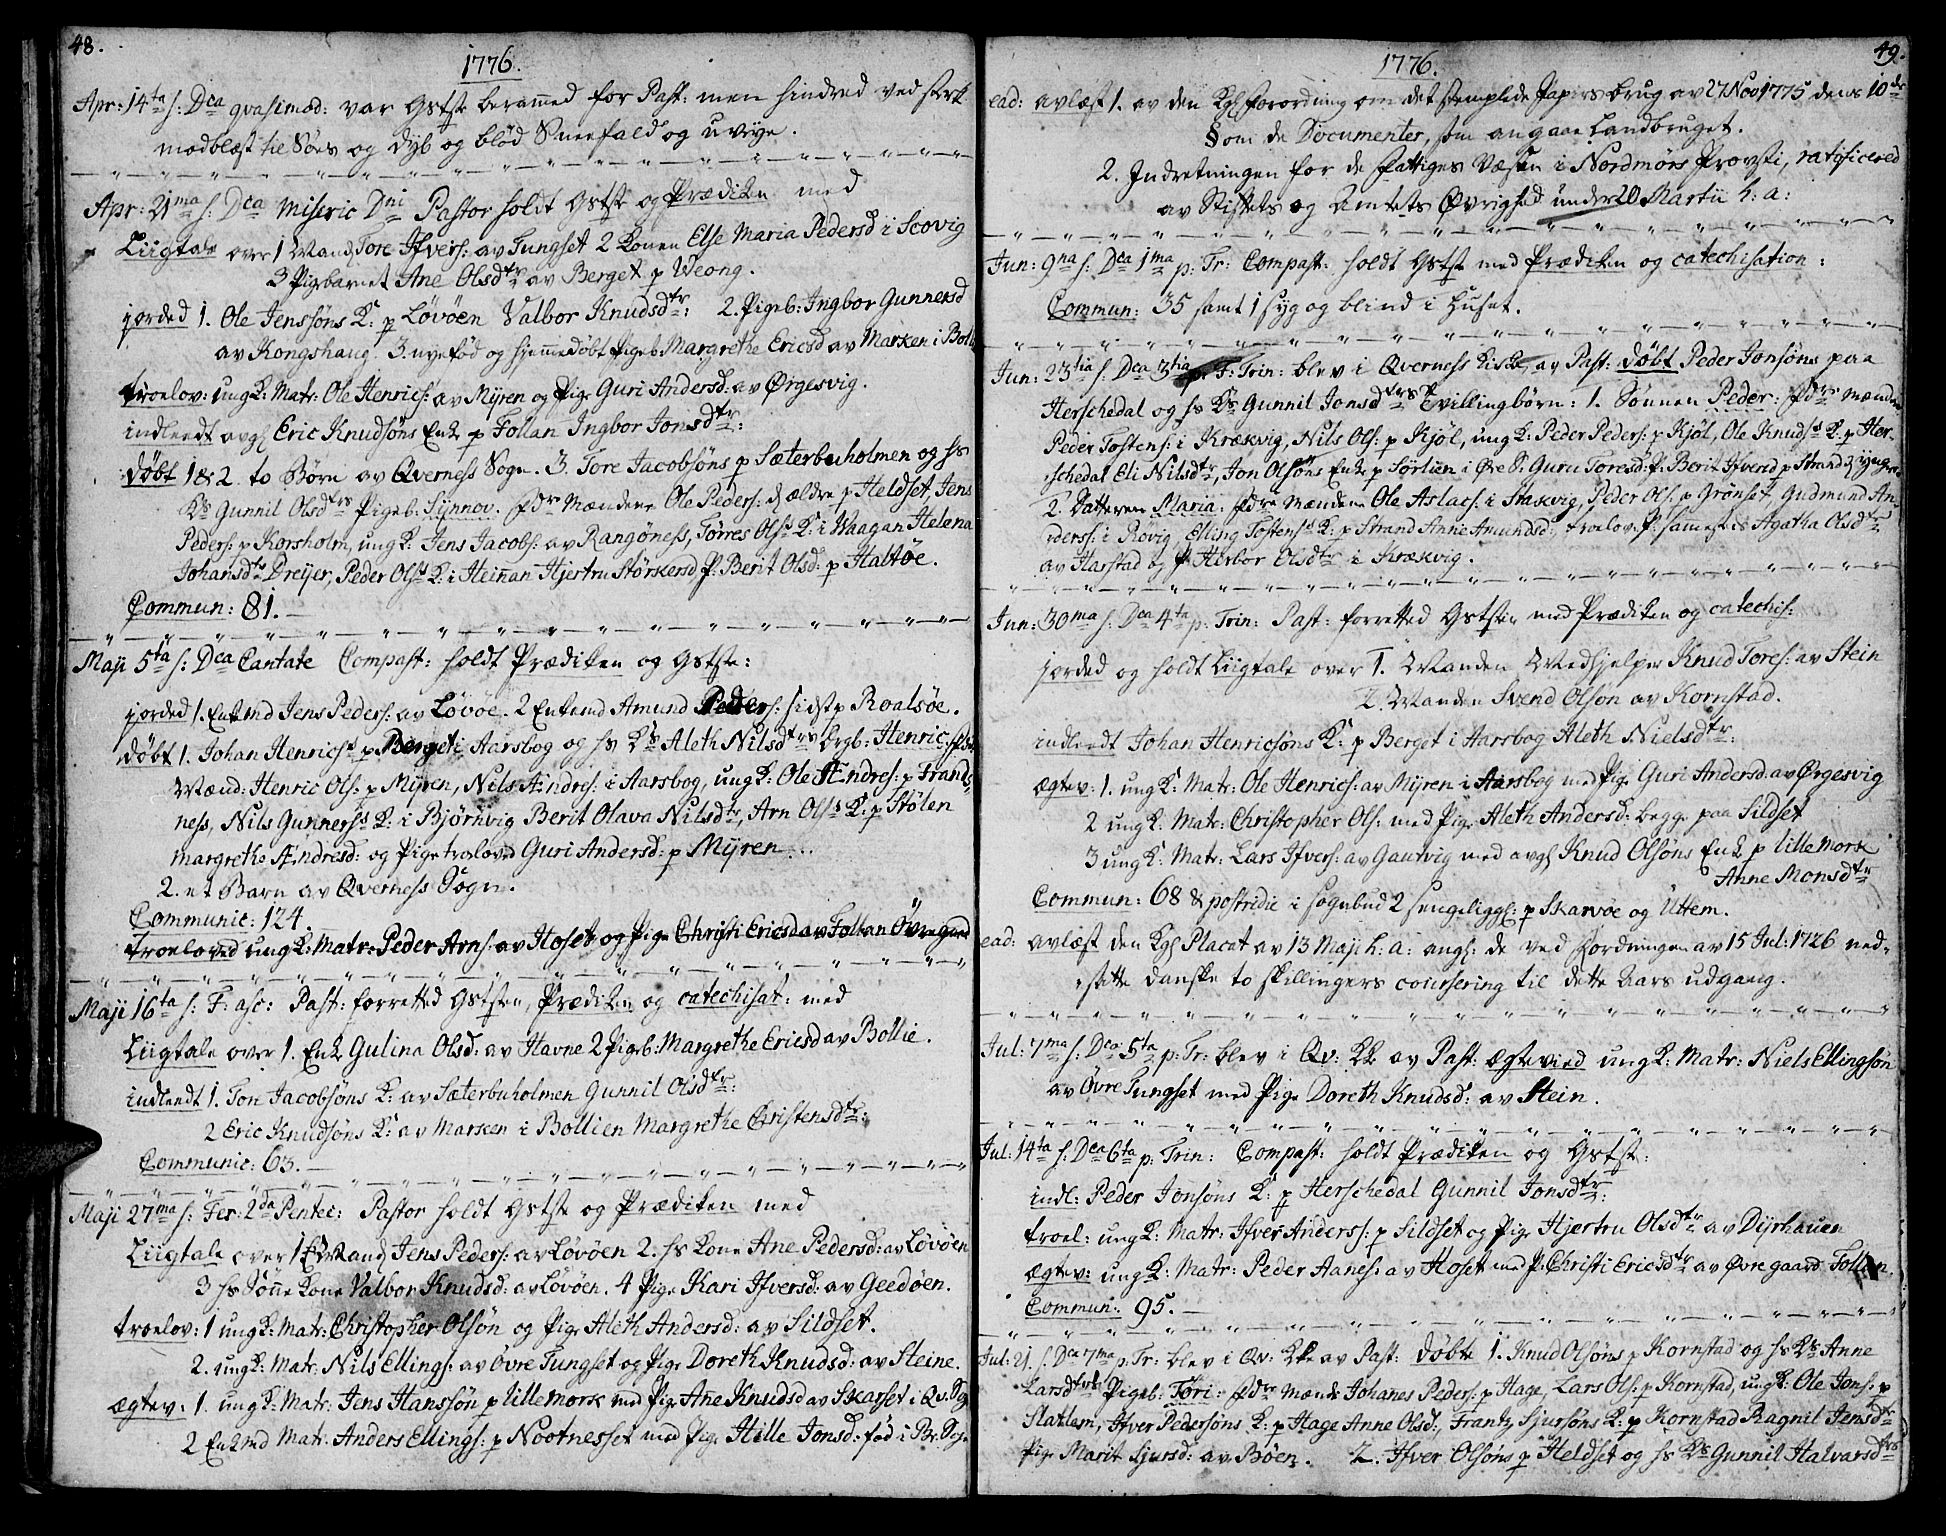 48.
1776.
Apr: 14ta s: Dca qvasimod: var Gstste berammed for Past: men hindred ved sterk
modblæst til Søes og dyb og blød Sneefald og uveye.
Apr: 21ma s: Dca Miseric Dni Pastor holdt Gstste og Prædiken med
Liigtale over 1 Mand Tore Ifvers: av Tungset 2 Konen Else Maria Pedersd i Scovig
3 Pigebarnet Ane Olsdtr av Berget p Weong.
jorded 1. Ole Jenssøns K: p Løvøen Valbor Knudsdtr: 2. Pigeb: Ingbor Gunnersd
av Kongshaug. 3. nyefød og hjemmedøbt Pigeb: Margrethe Ericsd av Marken i Boll
troelov: ung K: Matr: Ole Henrics: av Myren og Pige Guri Andersd: av Ørgesvig.
indleedt avg Eric Knudsøns Enke p Follan Ingbor Jonsdtr:
døbt 1 & 2 to Børn av Qverness Sogn. 3. Tore Jacobsøns p Sæterbuholmen og hs
Ks Gunnil Olsdtrs Pigeb: Synnov. fdre Mændene Ole Peders: d ældre p Heldset, Jens
Peders: p Korsholm, ung K: Jens Jacobs: av Rangøness, Tørres Olss K: i Waagan Helena
Johansdtr Dreyer, Peder Olss K: i Heinan Hjertru Størkersd P: Berit Olsd: p Haltøe.
Commun: 81.
Maji 5ta s: Dca Cantate Compast: holdt Prædiken og Gstste:
jorded 1. Enkemd Jens Peders: av Løvøe. 2 Enkemd Amund Peders: sidst p Roalsøe.
døbt 1. Johan Henricss p Berget i Aarsbog og hs Ks Aleth Nilsdtrs drgb: Henric, fdr
Mænd: Henric Ols: p Myren, Nils Ændres: i Aarsbog, ung K: Ole Ændres: p Frands
ness, Nils Gunnerss K: i Bjørnvig Berit Olava Nilsdtr, Arn Olss K: p Stølen
Margrethe Ændresd: og Pige troloved Guri Andersd: p Myren.
2. et Barn av Qverness Sogn.
Communic: 124.
troeloved ung K: Matr: Peder Arns: av Hoset og Pige Christi Ericsd av Follan Øvregaard
Maji 16ta s: F: asc: Past: forretted Gststen, Prædiken og catechisat: med
Liigtale over 1. Enke Gulina Olsd: av Havne 2 Pigeb: Margrethe Ericsd av Bollie.
indleedt 1. Tore Jacobsøns K: av Sæterbuholmen Gunnil Olsdtr:
2 Eric Knudsøns K: av Marken i Bollien Margrethe Christensdtr:
Communic: 63.
Maji 27ma s: Fer: 2da Pentec: Pastor holdt Gstste og Prædiken med
Liigtale over 1 Mand Jens Peders: av Løvøen 2. hs Kone Ane Pedersd: av Løvøen
3 hs Sønne Kone Valbor Knudsd: av Løvøen. 4 Pige Kari Ifversd: av Geedøen.
troelov: 1 ung K: Matr: Christopher Olsøn og Pige Aleth Andersd: av Sildset.
2. ung K: Matr: Nils Ellings: av Øvre Tungset og Pige Doreth Knudsd: av Steine.
ægtev: 1. ung K: Matr: Jens Hanssøn p Lillemork med Pige Ane Knudsd av Skarset i Qv: Sogn
2 Enkemd Matr: Anders Ellings: p Nootnesset med Pige Hille Jonsd: fød i Br: Sogn
49.
1776.
ead: avlæst 1. av den Kgl Forordning om det stemplede Papiirs brug av 27 Nov 1775 dens 10de
§ om de Documenter, som angaae Landbruget.
2. Indretningen for de Fattiges Væsen i Nordmørs Provsti, ratificered
av Stiftets og Amtets Øvrighed under 20 Martii h: a:
Jun: 9na s: Dca 1ma p: Tr: Compast: holdt Gstste med Prædiken og catechisation:
Commun: 35 samt 1 syg og blind i Huset.
Jun: 23tia s: Dca 3tia p: F: Trin: blev i Qverness Kirke, av Past: døbt Peder Jonsøns paa
Herschedal og hs Ks Gunnil Jonsdtrs Tvillingbørn: 1. Sønnen Peder: fdre Mændene
Peder Tostens: i Krækvig, Nils Ols: p Kjøl, ung K: Peder Peders: p Kjøl, Ole Knudss K: p Her-
schedal Eli Nilsdtr, Jon Olsøns Enke p Sørlien i Øre S: Guru Toresd: P: Berit Ifversd p Strand d yngre
2. Datteren Maria: fdre Mændene Ole Aslacs: i Stakvig, Peder Ols: p Grønset, Gudmund An-
ders: i Røvig, Elling Tostenss K: p Strand Anne Amundsd:, troelov: P: sammest: Agatha Olsdtr
av Harstad og P: Herbor Olsdtr i Krækvig.
Jun: 30ma s: Dca 4ta p: Trin: Past: forretted Gststen med Prædiken og catechis:
jorded og holdt Liigtale over 1. Manden Medhjelper Knud Tores: av Stein
2. Manden Svend Olson av Kornstad.
indleedt Johan Henricsøns K: p Berget i Aarsbog Aleth Nielsdtr:
ægtev: 1. ung K: Matr: Ole Henrics: av Myren i Aarsbog med Pige Guri Andersd: av Ørgesvig
2 ung K: Matr: Christopher Ols: med Pige Aleth Andersd: begge paa Sildset
3 ung K: Matr: Lars Ifvers: av Gautvig med avg Knud Olsøns Enke p Lillemork
Anne Monsdtr
Commun: 68 & postridie i sognebud 2 sengeligg: p Skarvøe og Uttem.
ead: avlæst den Kgl Placat av 13 Maji h: a: angl: de ved Fordningen av 15 Jul: 1726 ned-
satte danske to skillingers coursering til dette Aars udgang.
Jul: 7ma s: Dca 5ta p: Tr: blev i Qv: Kke av Past: ægtevied ung K: Matr: Niels Ellingsøn
av Øvre Tungset med Pige Doreth Knudsd: av Stein.
Jul: 14ta s: Dca 6ta p: Trin: Compast: holdt Prædiken og Gstst:
indl: Peder Jonsøns K: p Herschedal Gunnil Jonsdtr:
troel: ung K: Matr: Ifver Anderss: p Sildset og Pige Hjertru Olsdtr av Dyrhauen
ægtev: ung K: Matr: Peder Aanes: av Hoset med P: Christi Ericsdtr av Øvre gaard Follan.
Commun: 95.
Jul: 21. s: Dca 7ma p: Tr: blev i Qv: Kke av Past: døbte 1. Knud Olsøns p Kornstad og hs Ks Anne
Larsdtrs Pigeb: Tøri: fdre Mænd: Johanes Peders: p Hage, Lars Ols: p Kornstad, ung K: Ole Jons: p
Slatlem, Ifver Pedersøns K: p Hage Anne Olsd:, Frantz Sjursøns K: p Kornstad Ragnil Jensdtr
Pige Marit Sjursd: av Bøen. 2. Ifver Olsøns p Heldset og hs Ks Gunnil Halvarsdtrs